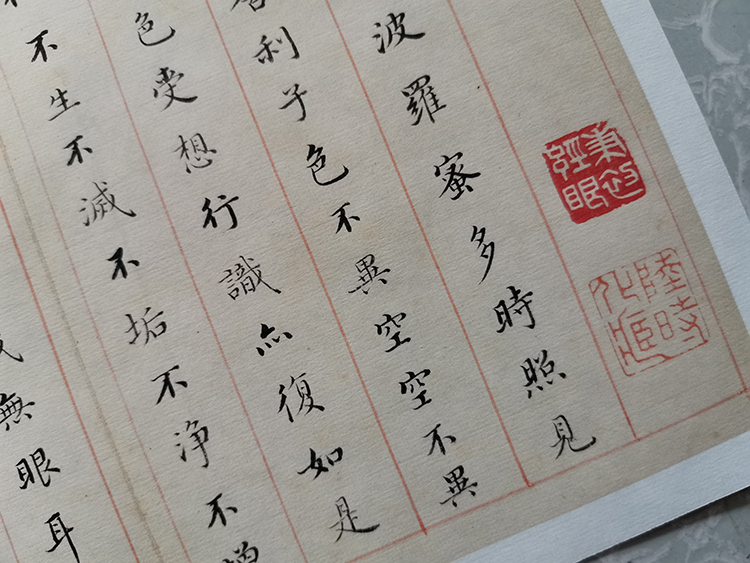 經眼
陸時化
波羅蜜多時照見
利子色不異空空不異
色受想行識亦復如是
不生不滅不垢不淨不增
無眼耳